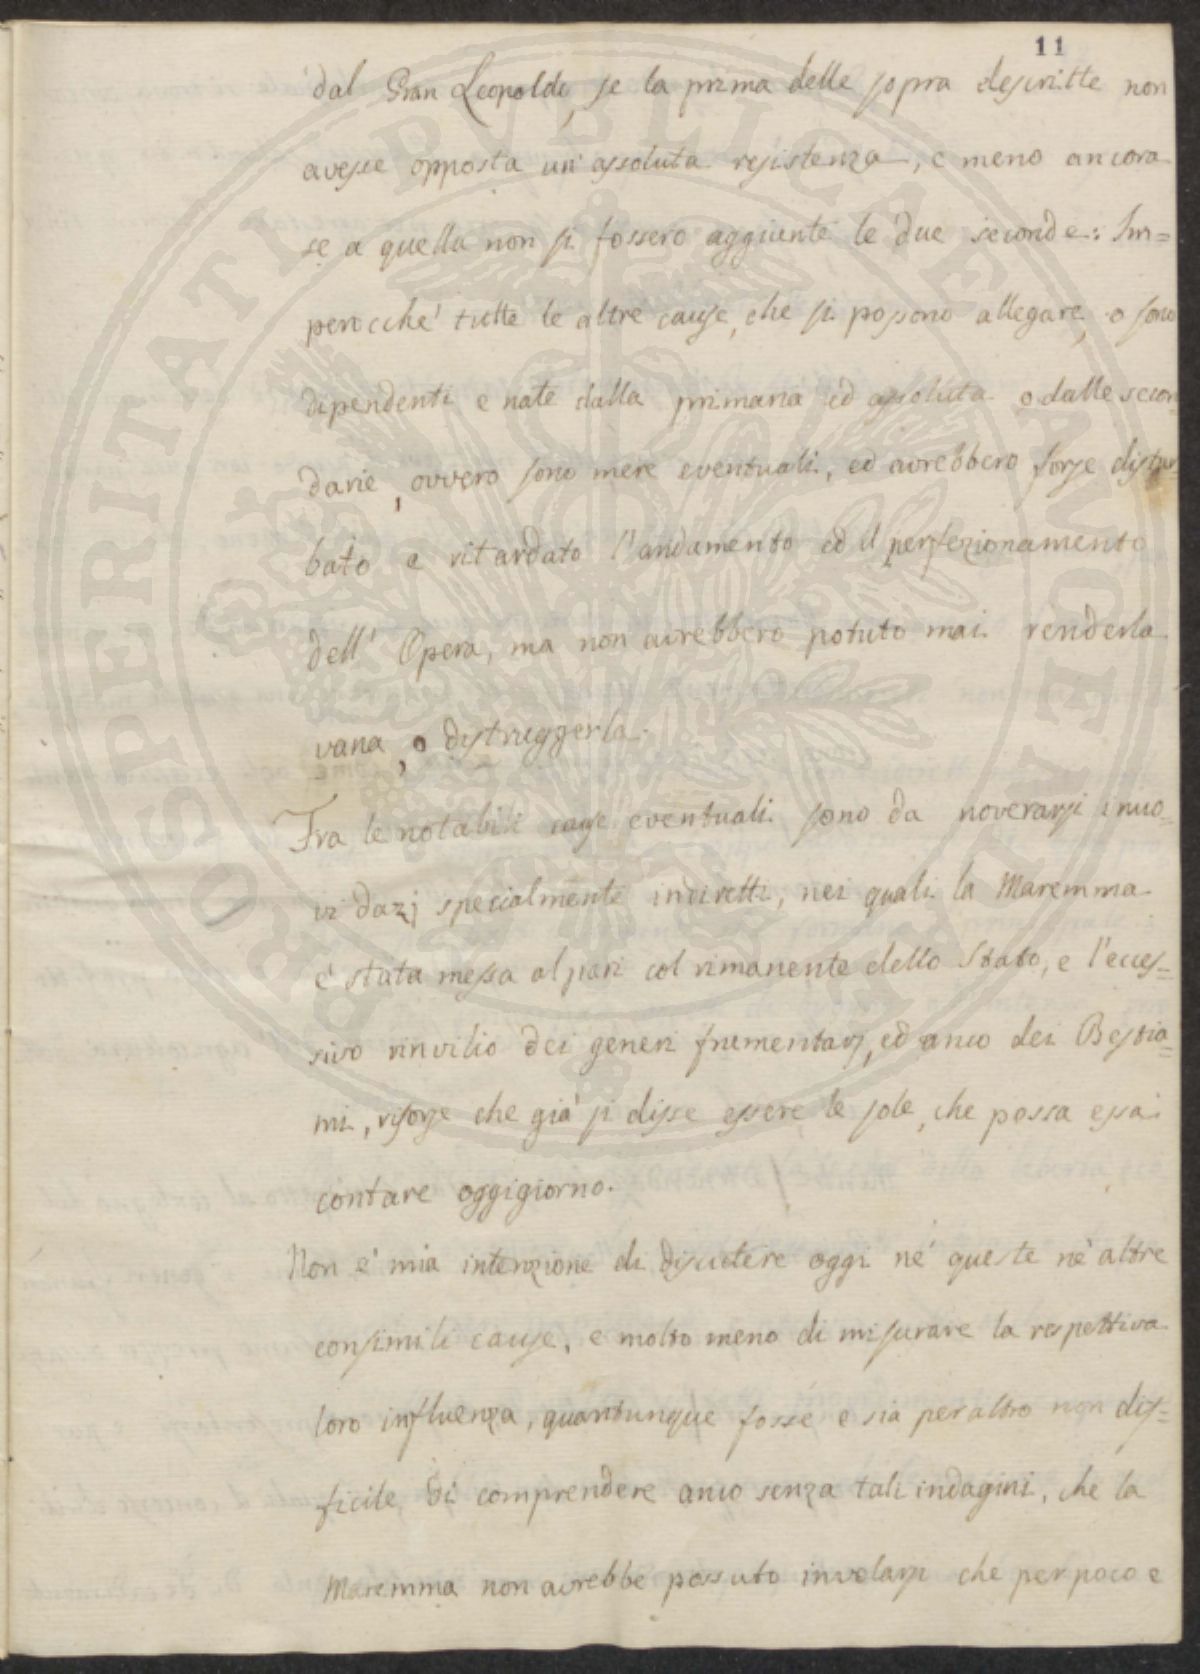 11
dal Gran Leopoldo, se la prima delle sopra descritte non
avesse opposta un' assoluta resistenza, e meno ancora
se a quella non si fossero aggiunte le due seconde: Im=
perocche' tutte le altre cause, che si possono allegare, o sono
dipendenti e nate dalla primaria ed assoluta o dalle secon
darie, ovvero sono mere eventuali, ed avrebbero forse distur
bato e ritardato l'andamento ed il perfezionamento
dell' Opera, ma non avrebbero potuto mai renderla
vana, o distruggerla.
Fra le notabili cause eventuali sono da noverarsi i nuo=
vi dazj specialmente indiretti, nei quali la Maremma
e' stata messa al pari col rimanente dello Stato, e l'ecces=
sivo rinvilio dei generi frumentarj, ed anco dei Bestia=
mi, risorse che già si disse essere le sole, che possa essa
contare oggigiorno.
Non e' mia intenzione di discutere oggi ne' queste ne' altre
consimili cause, e molto meno di misurare la respettiva
loro influenza, quantunque fosse e sia per altro non dif=
ficile di comprendere anco senza tali indagini, che la
Maremma non avrebbe possuto involarsi che per poco e
PROSPERITATI PUBLICAE AUGENDAE